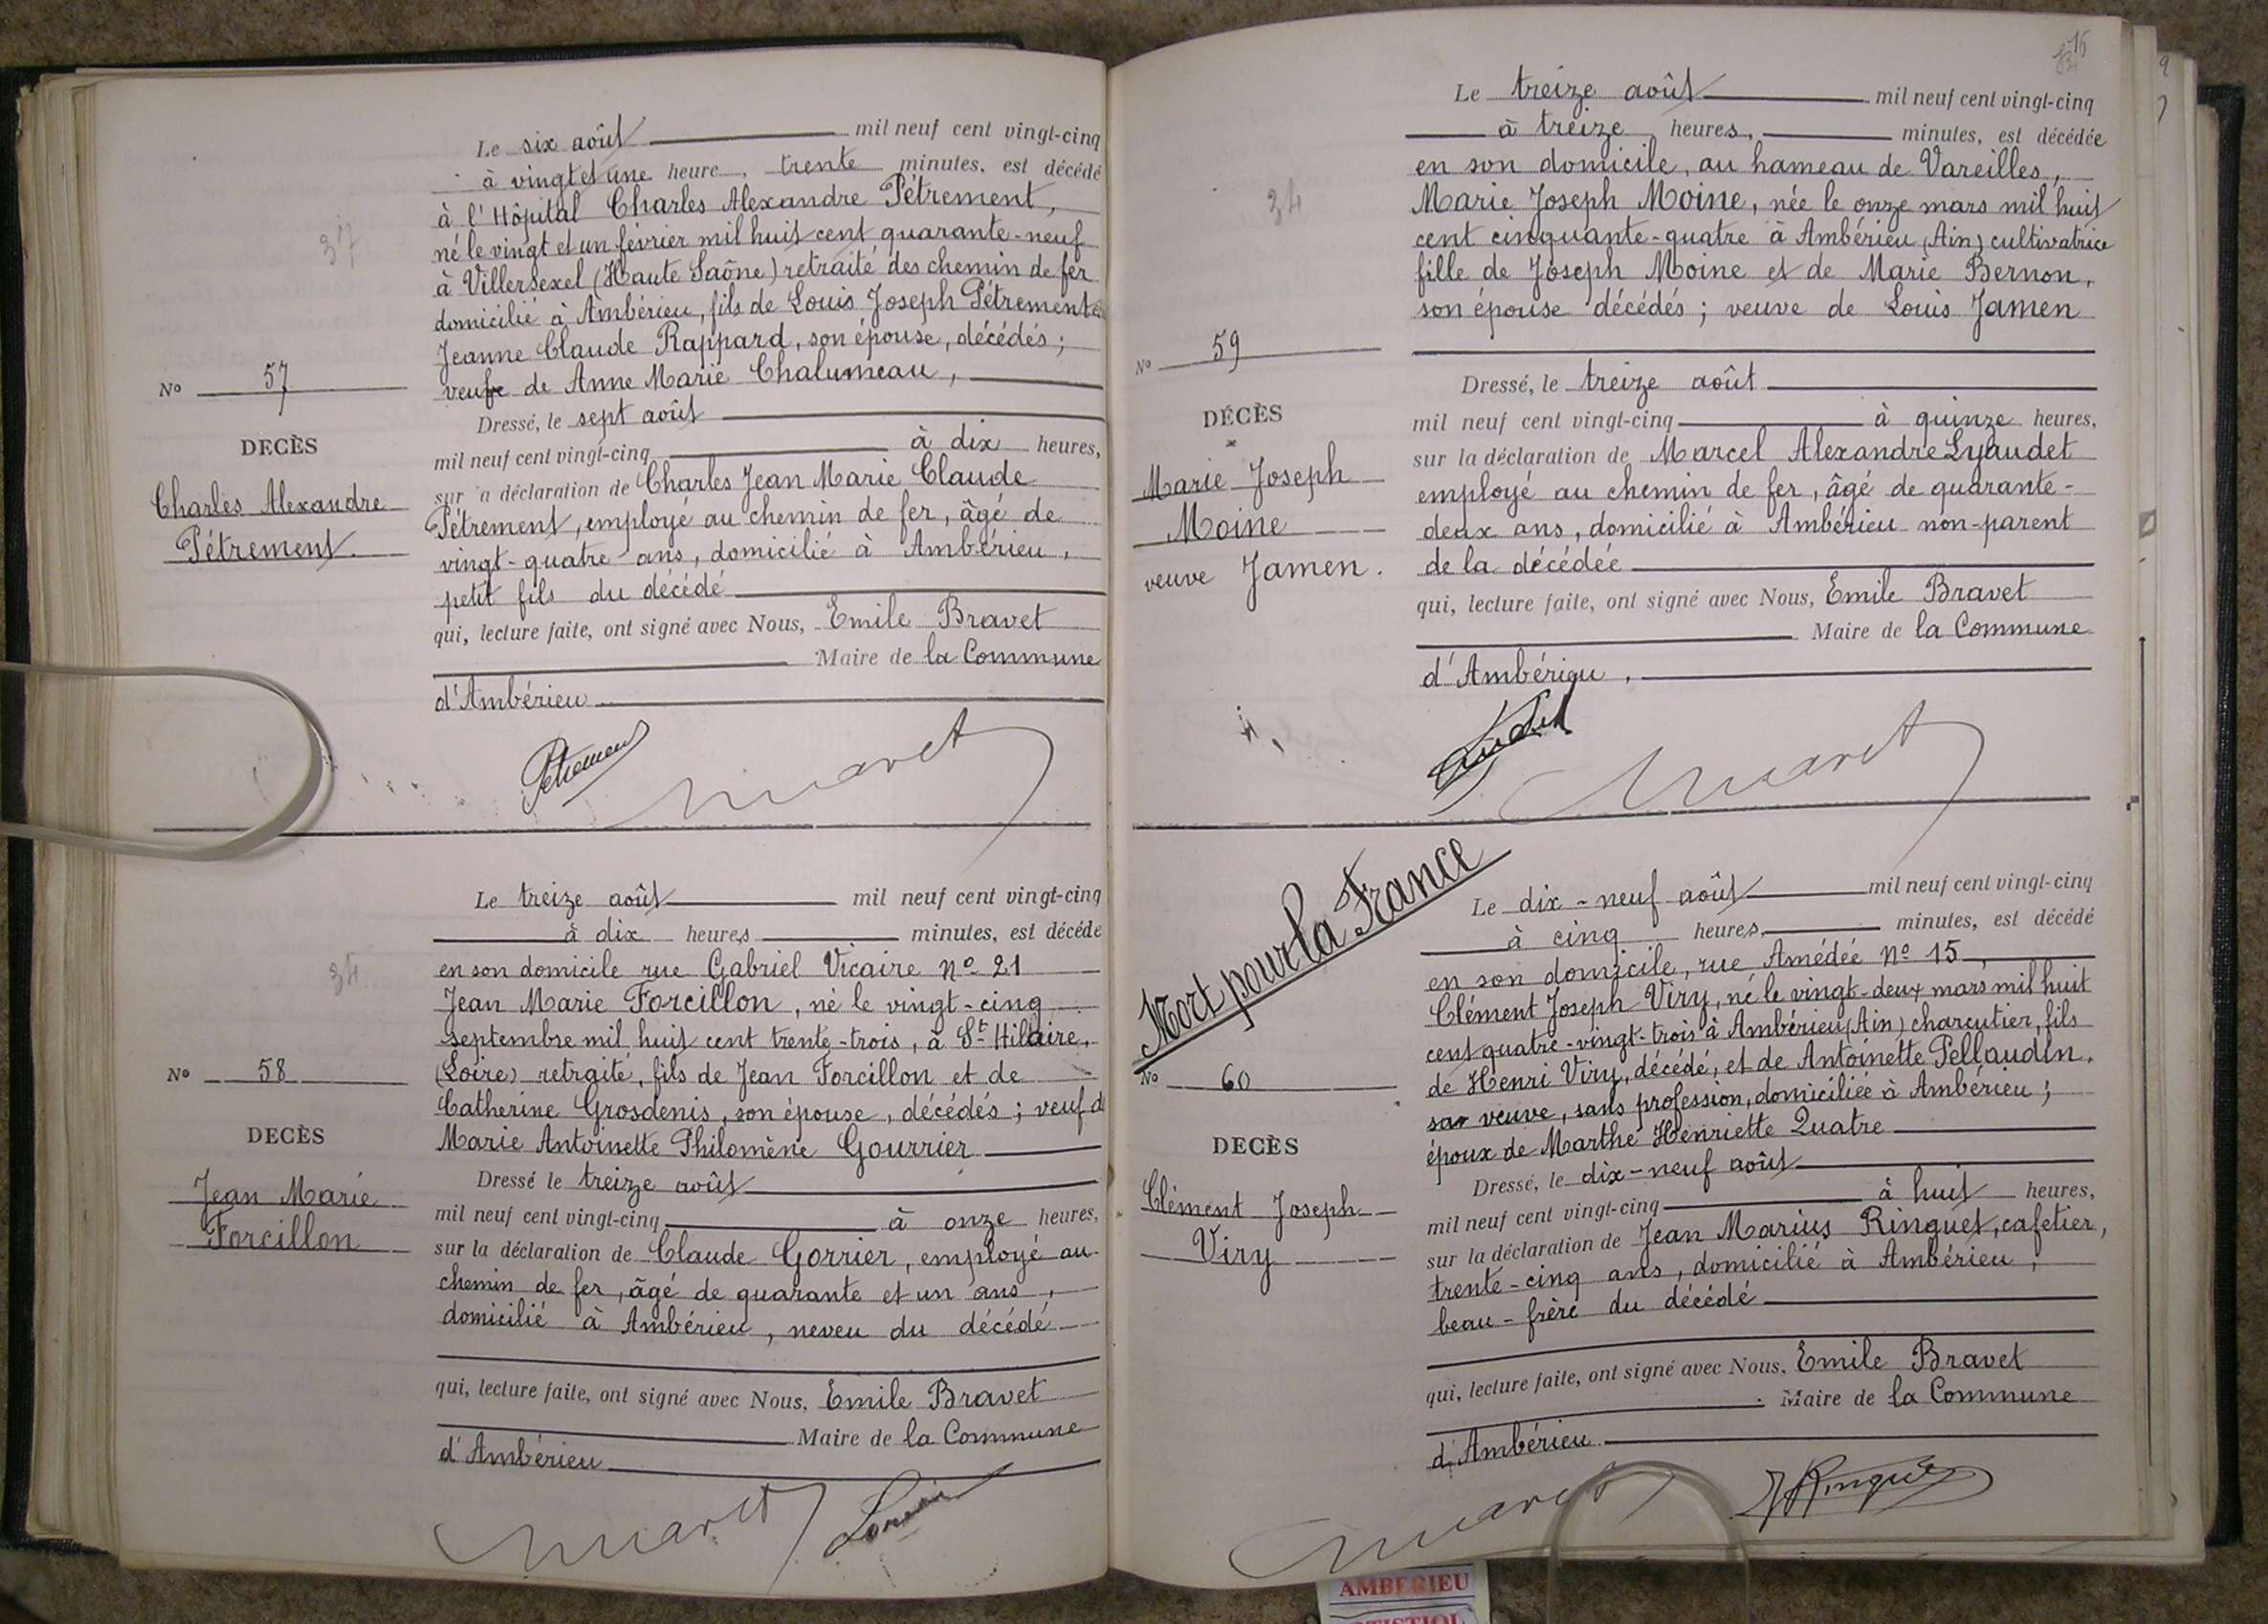 37
Le six août mil neuf cent vingt-cinq
à vingt et une heure, trente minutes, est décédé
à l'Hôpital Charles Alexandre Pétrement,
né le vingt et un février mil huit cent quarante-neuf
à Villersexel (Haute Saône) retraité des chemin de fer
domicilié à Ambérieu, fils de Louis Joseph Pétrement
Jeanne Claude Rappard, son épouse, décédés;
veuf de Anne Marie Chalumeau,
No 57
DECÈS
Charles Alexandre
Pétrement.
Dressé, le sept août
mil neuf cent vingt-cinq à dix heures,
sur la déclaration de Charles Jean Marie Claude
Pétrement, employé au chemin de fer, âgé de
vingt-quatre ans, domicilié à Ambérieu,
petit fils du décédé
qui, lecture faite, ont signé avec Nous, Emile Bravet
Maire de la Commune
d'Ambérieu
Petrement
34
Le treize août mil neuf cent vingt-cinq
à dix heures minutes, est décédé
en son domicile rue Gabriel Vicaire No 21
Jean Marie Forcillon, né le vingt-cinq
septembre mil huit cent trente-trois, à St Hilaire,
(Loire) retraité, fils de Jean Forcillon et de
Catherine Grosdenis, son épouse, décédés; veuf d
Marie Antoinette Philomène Gourrier
No 58
DECÈS
Jean Marie
Forcillon
Dressé le treize août
mil neuf cent vingt-cinq à onze heures,
sur la déclaration de Claude Gorrier, employé au
chemin de fer, âgé de quarante et un ans,
domicilié à Ambérieu, neveu du décédé
qui, lecture faite, ont signé avec Nous, Emile Bravet
Maire de la Commune
d'Ambérieu
16
34
Le treize août mil neuf cent vingt-cinq
à treize heures, minutes, est décédée
en son domicile, au hameau de Vareilles,
Marie Joseph Moine, née le onze mars mil huit
cent cinquante-quatre à Ambérieu (Ain) cultivatrice
fille de Joseph Moine et de Marie Bernon,
son épouse décédés; veuve de Louis Jamen
No 59
DÉCÈS
Marie Joseph
Moine
veuve Jamen.
Dressé, le treize août
mil neuf cent vingt-cinq à quinze heures,
sur la déclaration de Marcel Alexandre Lyaudet
employé au chemin de fer, âgé de quarante-
deux ans, domicilié à Ambérieu non-parent
de la décédée
qui, lecture faite, ont signé avec Nous, Emile Bravet
Maire de la Commune
d'Ambérieu,
Mort pour la France
Le dix-neuf août mil neuf cent vingt-cinq
à cinq heures, minutes, est décédé
en son domicile, rue Amédée No 15,
Clément Joseph Viry, né le vingt-deux mars mil huit
cent quatre-vingt-trois à Ambérieu (Ain) charcutier, fils
de Henri Viry, décédé, et de Antoinette Pellaudin,
sa veuve, sans profession, domiciliée à Ambérieu;
époux de Marthe Henriette Quatre
No 60
DECÈS
Clément Joseph
Viry
Dressé, le dix-neuf août
mil neuf cent vingt-cinq à huit heures,
sur la déclaration de Jean Marius Ringuet, cafetier,
trente-cinq ans, domicilié à Ambérieu,
beau-frère du décédé
qui, lecture faite, ont signé avec Nous, Emile Bravet
Maire de la Commune
d'Ambérieu
JRinguet
AMBERIEU